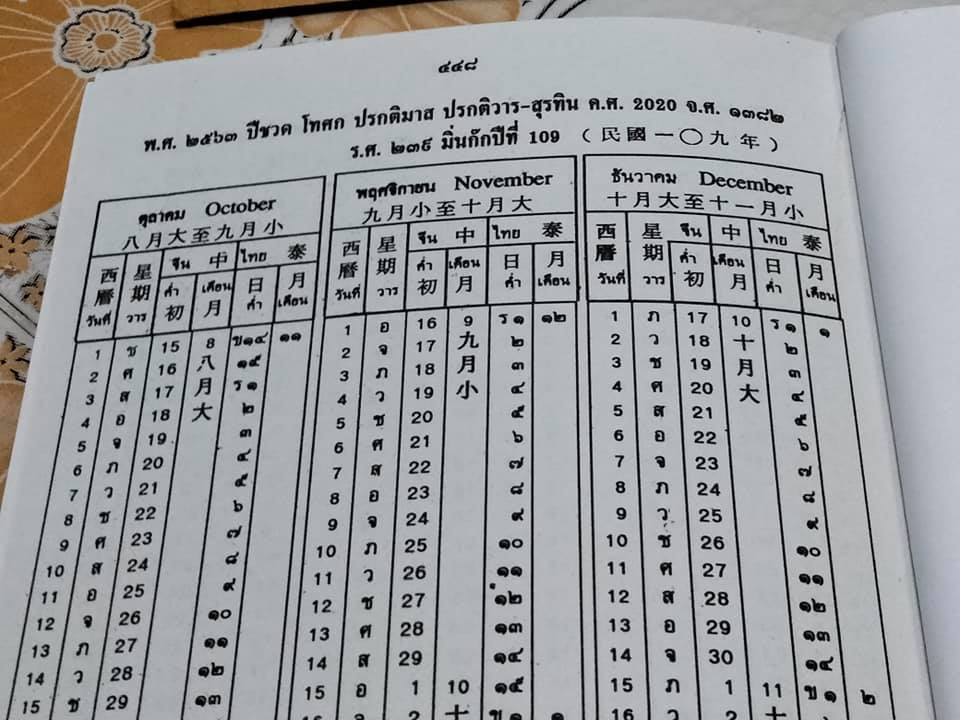 ๔๔๘
พ.ศ. ๒๕๖๓ ปีชวด โทศก ปรกติมาส ปรกติวาร-สุรทิน ค.ศ. 2020 จ.ศ. ๑๓๘๒
ร.ศ. ๒๓๙ มิ่นกักปีที่ 109 (民國一〇九年)
ตุลาคม October
八月大至九月小
西曆 วันที่ 星期 วาร จีน 中 ไทย 泰
ค่ำ 初 เดือน 月 日 ค่ำ 月 เดือน
1 ช 15 8 ข๑๔ ๑๑
2 ศ 16 八 ๑๕
3 ส 17 月 ร ๑
4 อ 18 大 ๒
5 จ 19 ๓
6 ภ 20 ๔
7 ว 21 ๕
8 ช 22 ๖
9 ศ 23 ๗
10 ส 24 ๘
11 อ 25 ๙
12 จ 26 ๑๐
13 ภ 27 ๑๑
14 ว 28 ๑๒
15 ช 29 ๑๓
พฤศจิกายน November
九月小至十月大
西曆 วันที่ 星期 วาร จีน 中 ไทย 泰
ค่ำ 初 เดือน 月 日 ค่ำ 月 เดือน
1 อ 16 9 ร ๑ ๑๒
2 จ 17 九 ๒
3 ภ 18 月 ๓
4 ว 19 小 ๔
5 ช 20 ๕
6 ศ 21 ๖
7 ส 22 ๗
8 อ 23 ๘
9 จ 24 ๙
10 ภ 25 ๑๐
11 ว 26 ๑๑
12 ช 27 ๑๒
13 ศ 28 ๑๓
14 ส 29 ๑๔
15 อ 1 10 ๑๕
2 十 ข ๑ ๑
ธันวาคม December
十月大至十一月小
西曆 วันที่ 星期 วาร จีน 中 ไทย 泰
ค่ำ 初 เดือน 月 日 ค่ำ 月 เดือน
1 ภ 17 10 ร ๑ ๑
2 ว 18 十 ๒
3 ช 19 月 ๓
4 ศ 20 大 ๔
5 ส 21 ๕
6 อ 22 ๖
7 จ 23 ๗
8 ภ 24 ๘
9 ว 25 ๙
10 ช 26 ๑๐
11 ศ 27 ๑๑
12 ส 28 ๑๒
13 อ 29 ๑๓
14 จ 30 ๑๔
15 ภ 1 11 ข ๑ ๒
16 ว 2 十